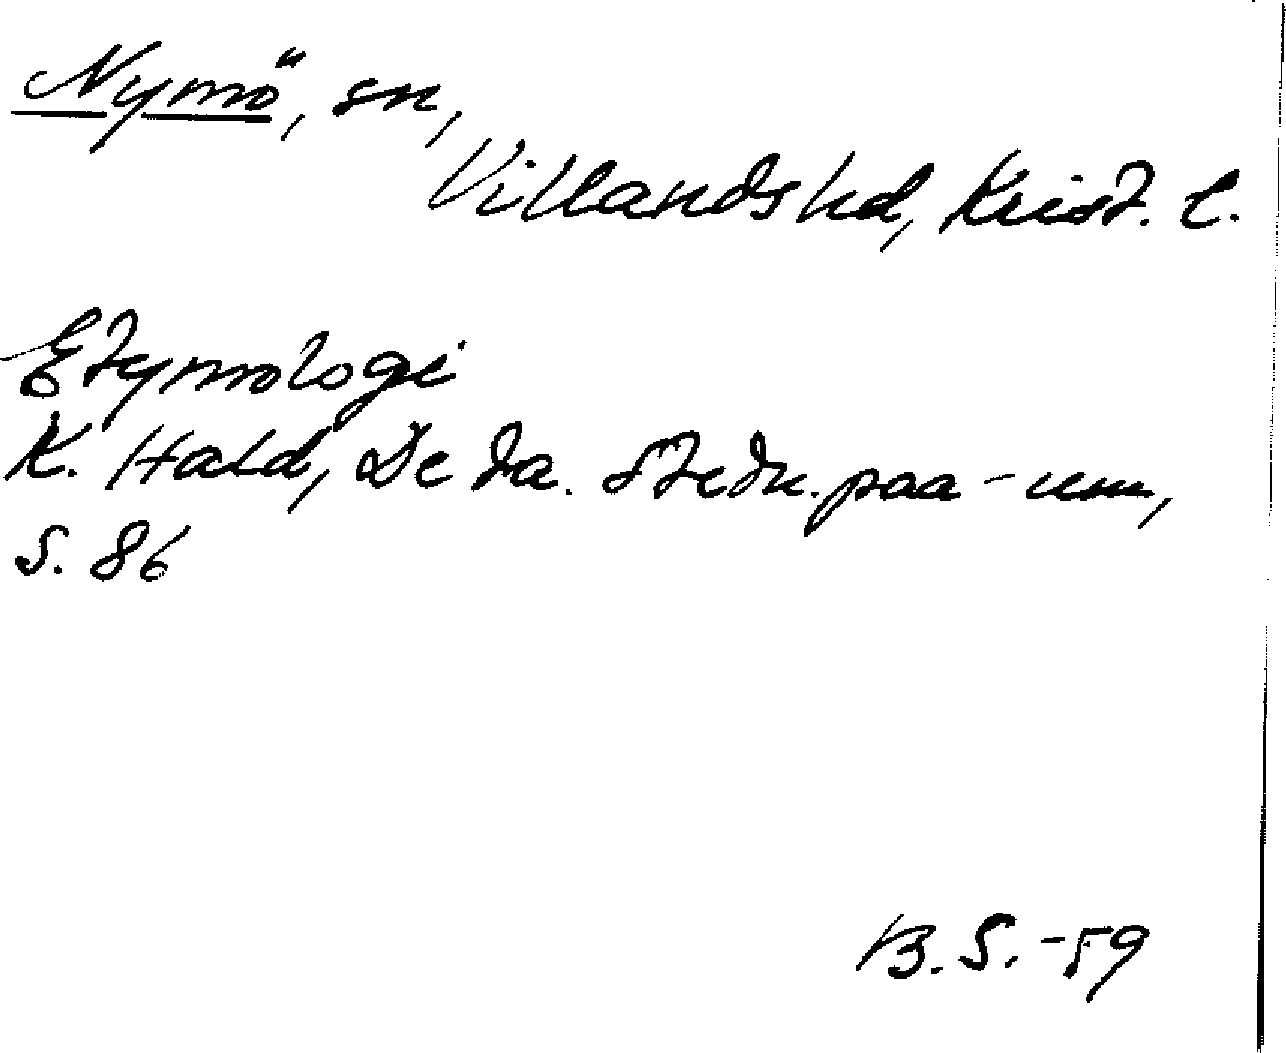 Nymö, sn,
Villands hd, Krist. l.
Etymologi
K. Hald, De da. Stedn. paa -um,
S. 86
B. S. -59